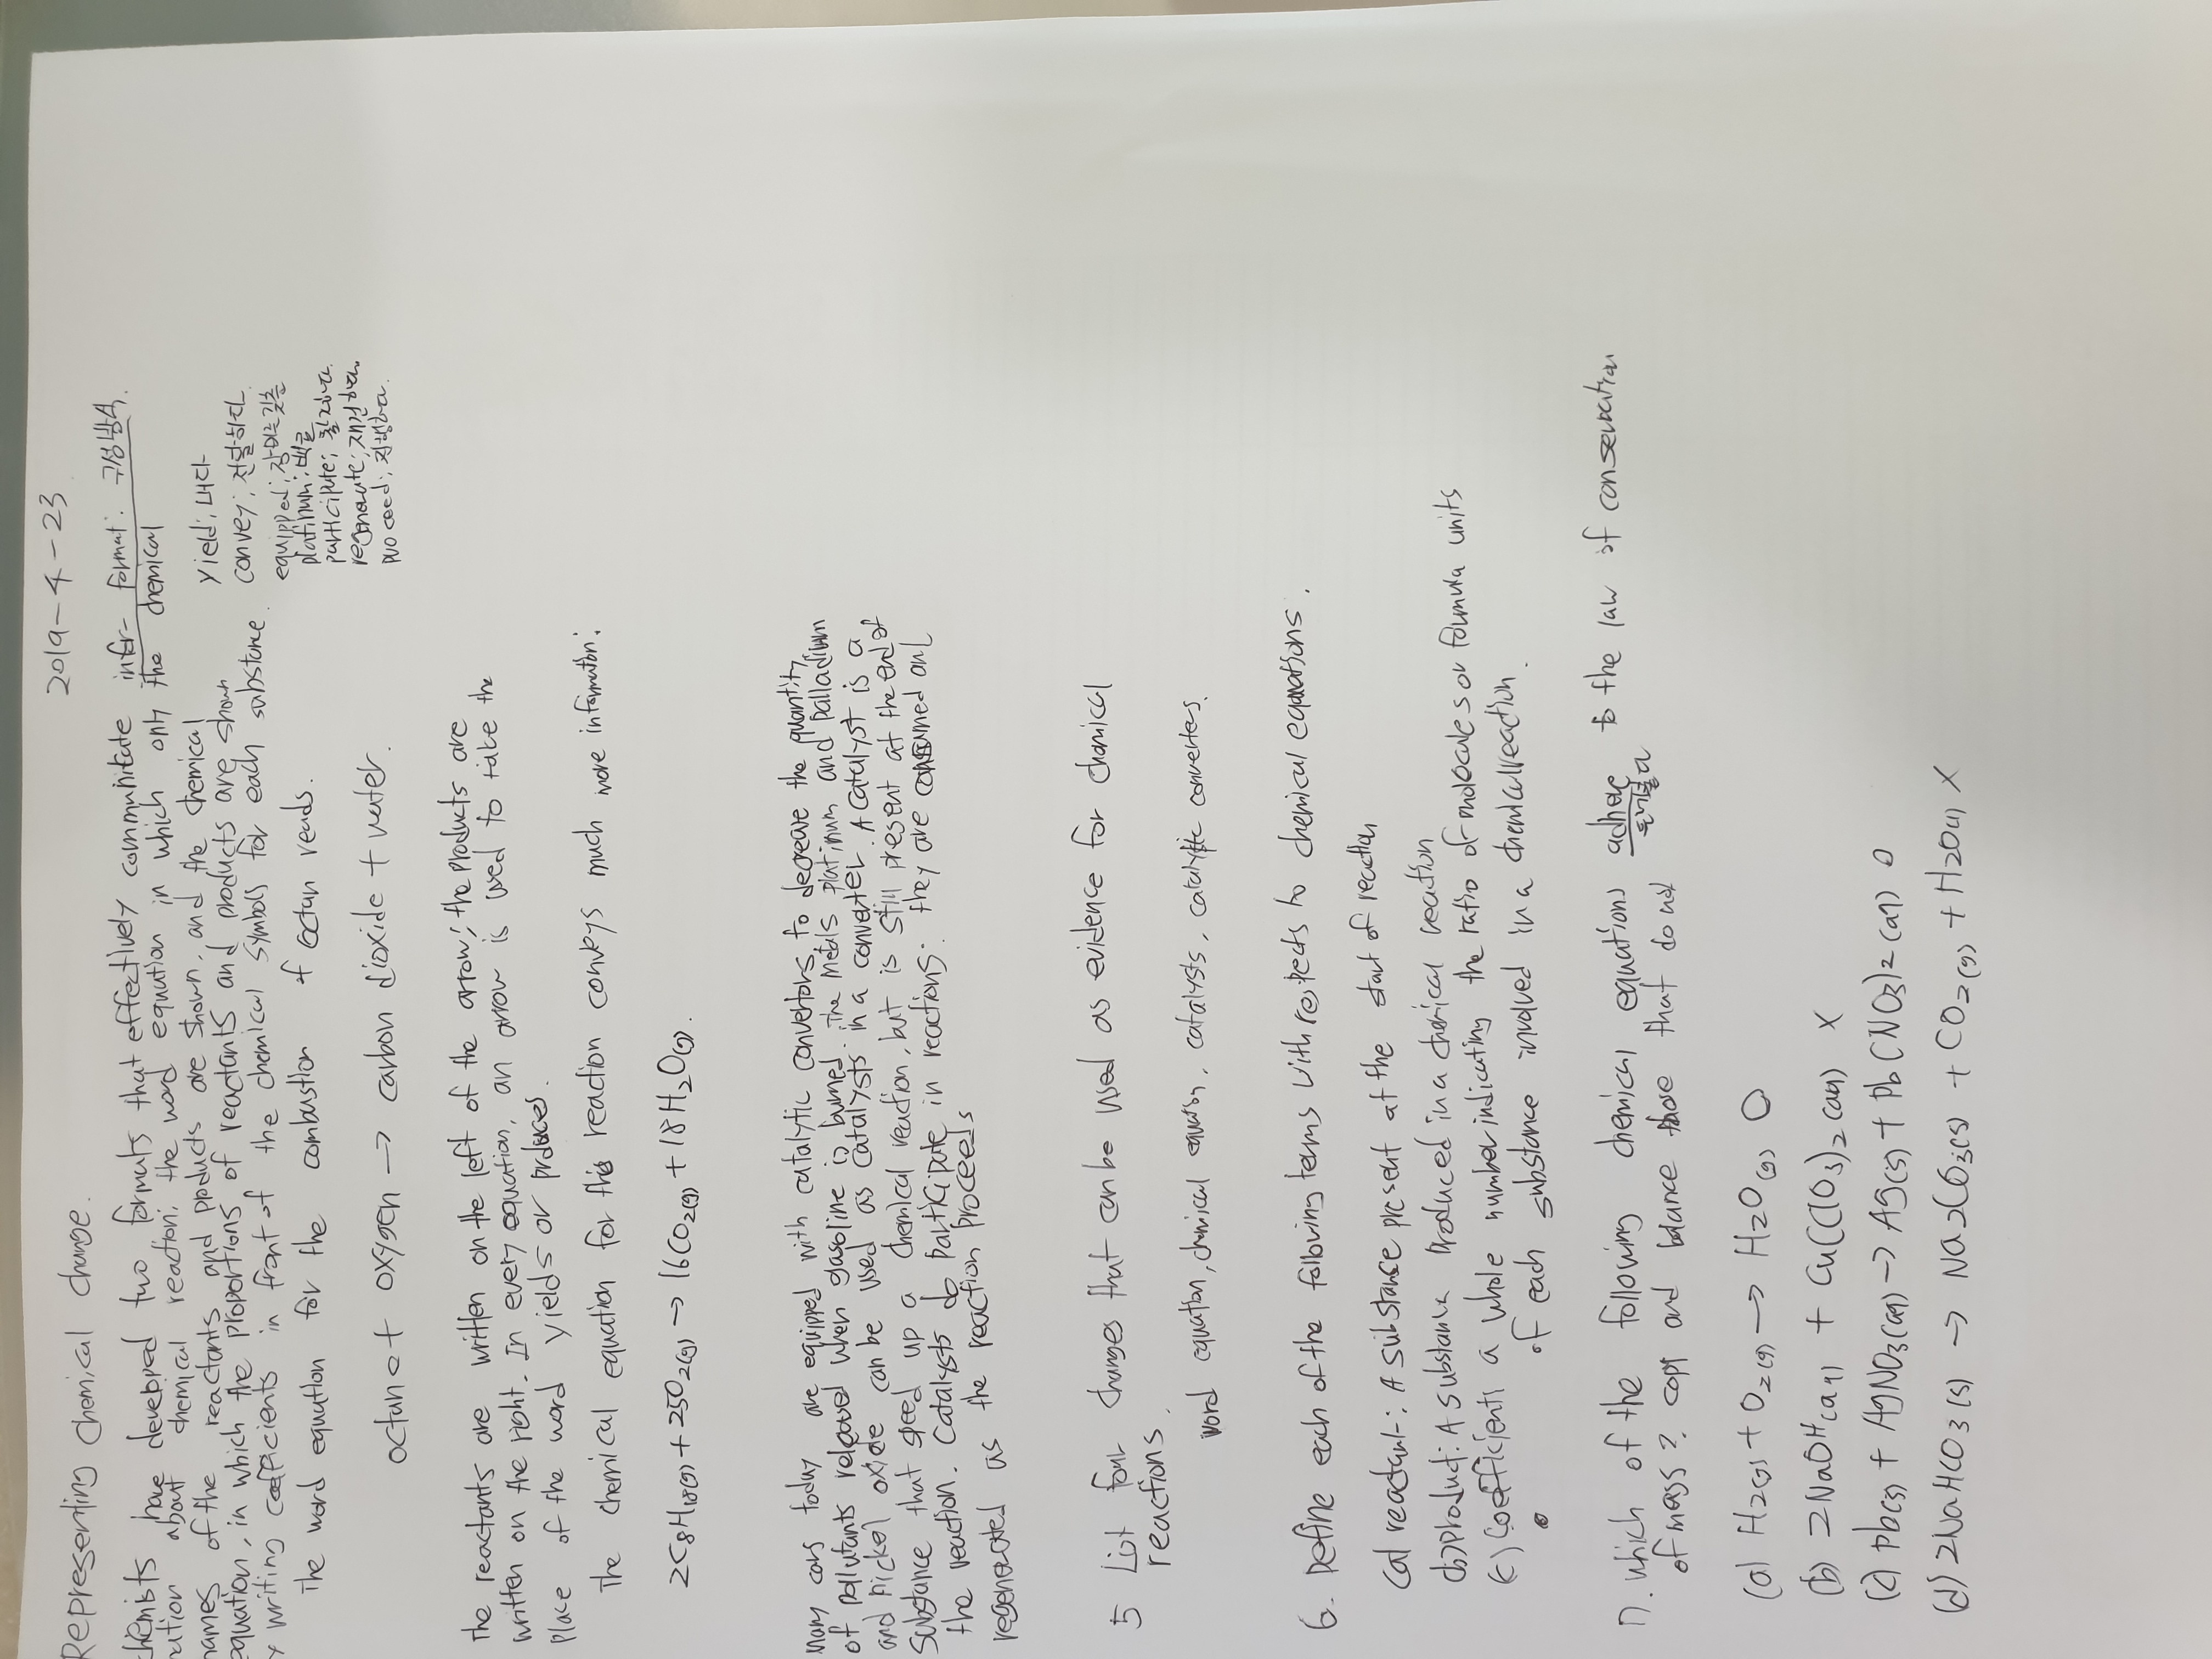 2019-4-23
Representing chemical change.
chemists have developed two formats that effectively communicate infor-
mation about chemical reaction; the word equation in which only the chemical
names of the reactants and products are shown, and the chemical
equation, in which the proportions of reactants and products are shown
y writing coefficients in front of the chemical symbols for each substance.
The word equation for the combustion of octan reads.
format: 구성방식.
yield; 내다
convey; 전달하다
equipped; 장비를갖춘
platinum; 백금
participate; 참가하다.
regenerate; 재건하다.
proceed; 진행하다.
octane + oxygen → carbon dioxide + water.
the reactants are written on the left of the arrow; the products are
written on the right. In every equation, an arrow is used to take the
place of the word yields or produces.
The chemical equation for this reaction conveys much more information:
2C8H18(g) + 25O2(g) → 16CO2(g) + 18H2O(g).
Many cars today are equipped with catalytic convertors, to decreate the quantity
of pollutants released when gasoline is burned. the metals platinum and palladium
and nickel oxide can be used as catalysts in a converter. A catalyst is a
substance that speed up a chemical reaction, but is still present at the end of
the reaction. Catalysts do participate in reactions: they are consumed and
regenerated as the reaction proceeds
5 List four changes that can be used as evidence for chemical
reactions.
word equation, chemical equation, catalysts, catalytic converters.
6. Define each of the following terms with respects to chemical equations.
(a) reactant: A substance present at the start of reaction
(b) product: A substance produced in a chemical reaction
(c) Coefficients a whole number indicating the ratio of molecules or formula units
of each substance involved in a chemical reaction.
7. which of the following chemical equations adhere to the law of conservation
of mass? copy and balance those that do not
(a) H2(g) + O2(g) → H2O(g) O
(b) 2NaOH(aq) + Cu(ClO3)2(aq) X
(c) Pb(s) + AgNO3(aq) → Ag(s) + Pb(NO3)2(aq) O
(d) 2NaHCO3(s) → Na2CO3(s) + CO2(g) + H2O(l) X